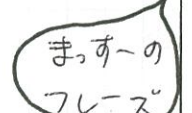 まっすーの
フレーズ